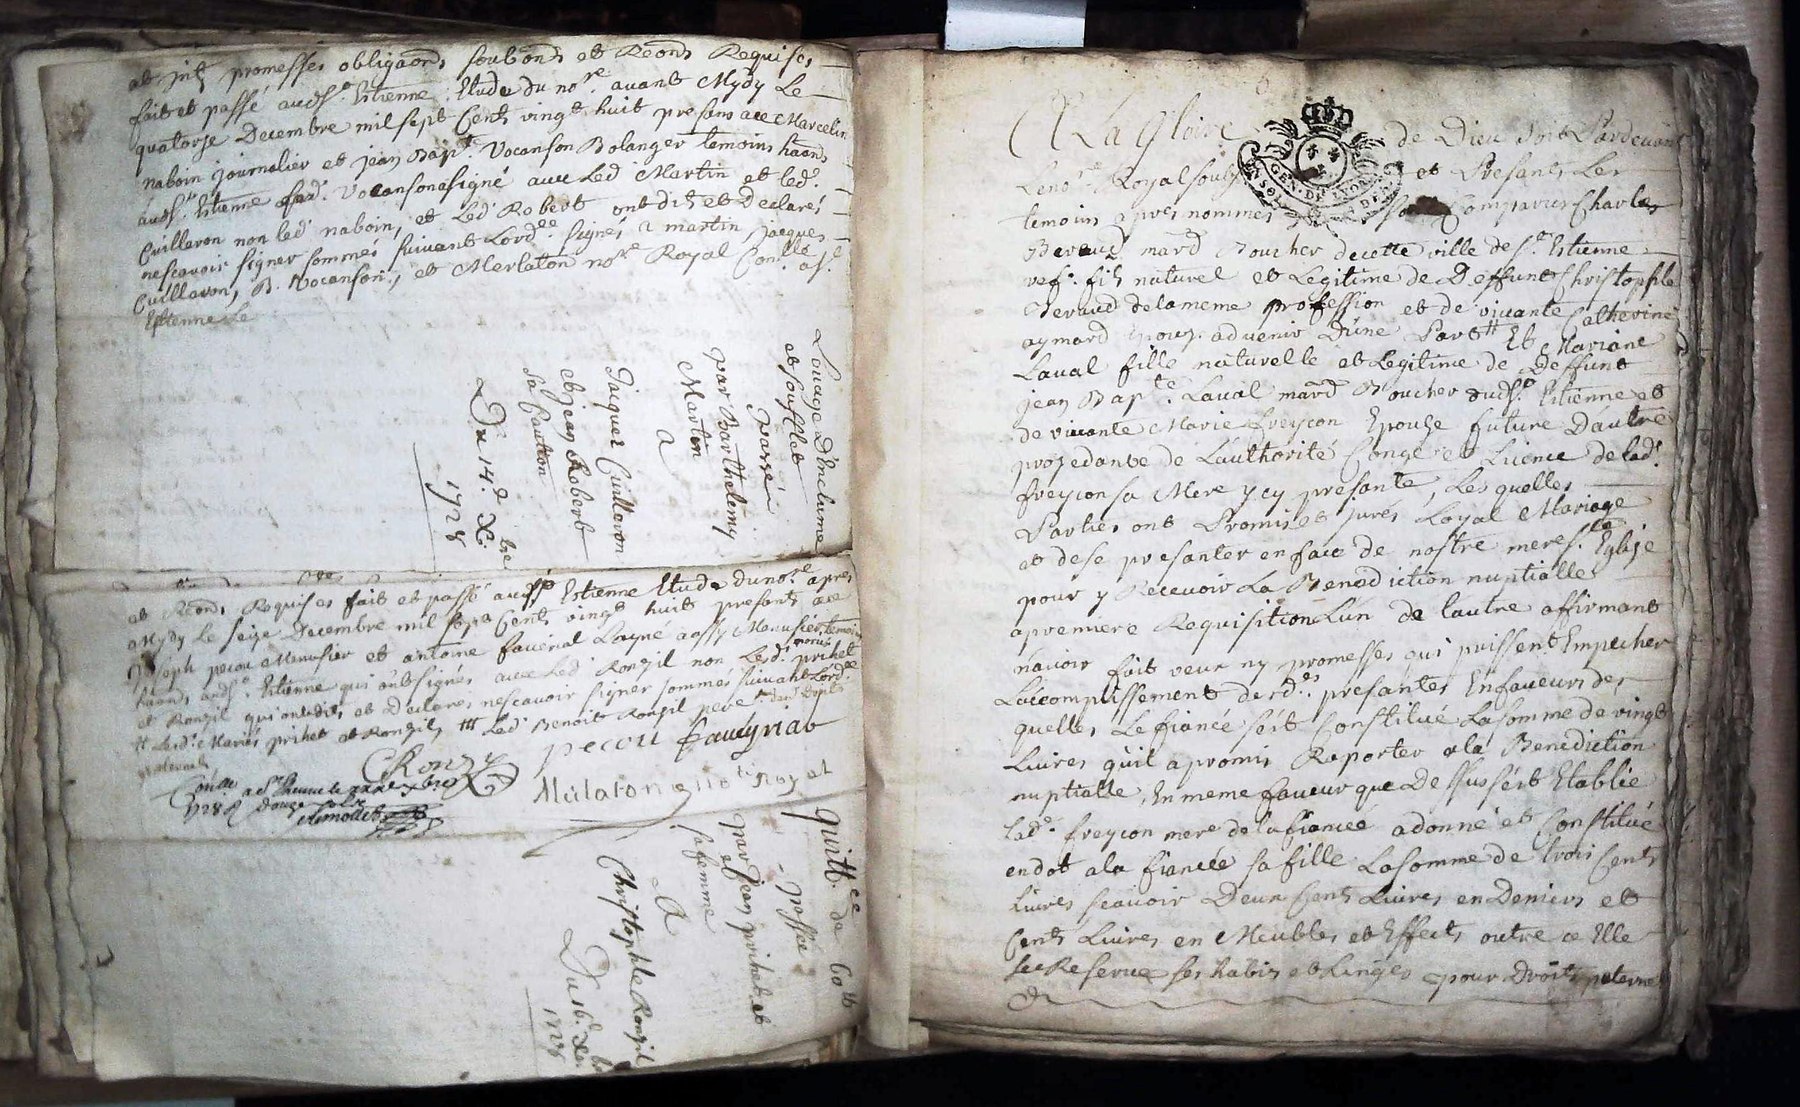 et jnts promesses obligaons soubons et Reons Requises
fait et passé audSt. Etienne Etude du nore. avant Mydy Le
quatorze Decembre mil sept Cents vingt huit presans ace Marcelin
Naboin journalier et jean Bapte. Vocanson Bolanger temoins haans
audSt. Etienne led. Vocanson a signé avec Led Martin et led.
Cuilleron non led naboin, et Led Robert ont dits et Declarés
nescavoir signer sommés suivant Lordce. signés a martin Jacques
Cuilleron, B. Vocanson, et Merlaton nore Royal
Estienne Le
Louage D'Enclume
et soufflet
Passé
par Barthelemy
Martin
A
Jacques Cuilleron
et jean Robert
sa Caution
Du 14e. Xbre
1728
et Reons Requises fait et passé audSt. Estienne Etude du nore. apres
Mydy Le seize Decembre mil sept Cents vingt huit presants ace
Joseph pecou Menusier et antoine aussy Menusier temoins
haans audSt. Etienne qui ont signés avec Led Ronzil non Lesd. mariés prihet
et Ronzil qui ont dits et Declarés nescavoir signer sommés suivant Lordce
Led Benoit Ronzil pere
pecou faueyriat
CRonzil
Mérlaton notre Royal
1728 R douze sols
quittce de 60tt
passée
par jean prihet et
et
sa femme
A
Christophle Ronzil
Du 16e. Xbre
1728
A La Gloire de Dieu soit Pardevant
Le nore. Royal soubs et Presants Les
temoins apres nommes sont Comparus Charles
Beraud mard Boucher de cette ville de St. Etienne
fils naturel et Legitime de Deffunt Christophle
Beraud de la meme profession et de vivante Catherine
aymard Epoux advenir D'une Part Et Mariane
Laval fille naturelle et Legitime de Deffunt
jean Bapte. Laval mard Boucher dudSt. Etienne et
de vivante Marie freycon Epouze future D'autre
prozedante de L'authorité Congé et Licence de lad.
freycon sa Mere ycy presante, Les quelles
Parties ont Promis et jurés Loyal Mariage
et de se presanter en face de nostre mere Ste. Eglize
pour y Recevoir La Benediction nuptialle
a premiere Requisition L'un de l'autre affirmant
navoir fait veux ny promesses qui puissent Empecher
L'accomplissement desdes. presantes En faveurs des
quelles Le fiancé s'est Constitué La somme de vingt
Livres qu'il a promis Raporter a la Benediction
nuptialle, En meme faveur que Dessus s'est Etablie
Lade. freycon mere de la fiancée a donné et Constitué
en dot a la fiancée sa fille La somme de trois Cents
Livres scavoir Deux Cents Livres en Deniers et
Cents Livres en Meubles et Effects outre ce Elle
se Reserve ses habits et Linges pour Droits paterne